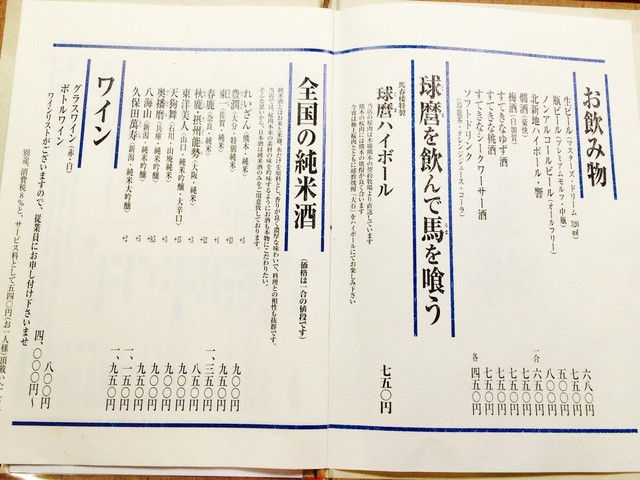 お飲み物
生ビール(マスターズ・ドリーム 320㎖) 六八〇円
瓶ビール(プレミアムモルツ・中瓶) 七五〇円
ノンアルコールビール(オールフリー) 五〇〇円
北新地ハイボール・響 八〇〇円
燗酒(豪快) 一合 六五〇円
梅酒(白加賀) 七五〇円
すてきなゆず酒 七五〇円
すてきな桃酒 七五〇円
すてきなシークワーサー酒 七五〇円
ソフトドリンク 各 四五〇円
(烏龍茶・オレンジジュース・コーラ)
球磨を飲んで馬を喰う
馬春楼特製
球磨ハイボール 七五〇円
当店の桜肉は本場熊本の契約牧場より直送しています
熊本の桜肉には熊本の焼酎が良く合います
今宵は桜肉とともに球磨焼酎「大石」をハイボールにてお楽しみ下さい
全国の純米酒 (価格は一合の値段です)
純米酒とはお米と米麹、水だけを原料とし、香りが良く濃厚な味わいで、料理との相性も抜群です。
当店では、桜肉本来の素材の味を吟味するようにお酒も本物にこだわりたい。
そんな思いから、日本酒は純米酒のみをご用意致しております。
れいざん(熊本・純米)
豊潤(大分・特別純米)
東一(佐賀・純米)
春鹿(奈良・純米)
秋鹿 摂州能勢(大阪・純米)
東洋美人(山口・純米吟醸)
天狗舞(石川・山廃純米)
奥播磨(兵庫・純米吟醸)
八海山(新潟・純米吟醸) 一、一五〇円
久保田萬寿(新潟・純米大吟醸) 一、九五〇円
ワイン
グラスワイン(赤・白) 八〇〇円
ボトルワイン 四、〇〇〇円〜
ワインリストがございますので、従業員にお申し付け下さいませ
別途、消費税8%と、サービス料として五四〇円(お一人様)頂戴